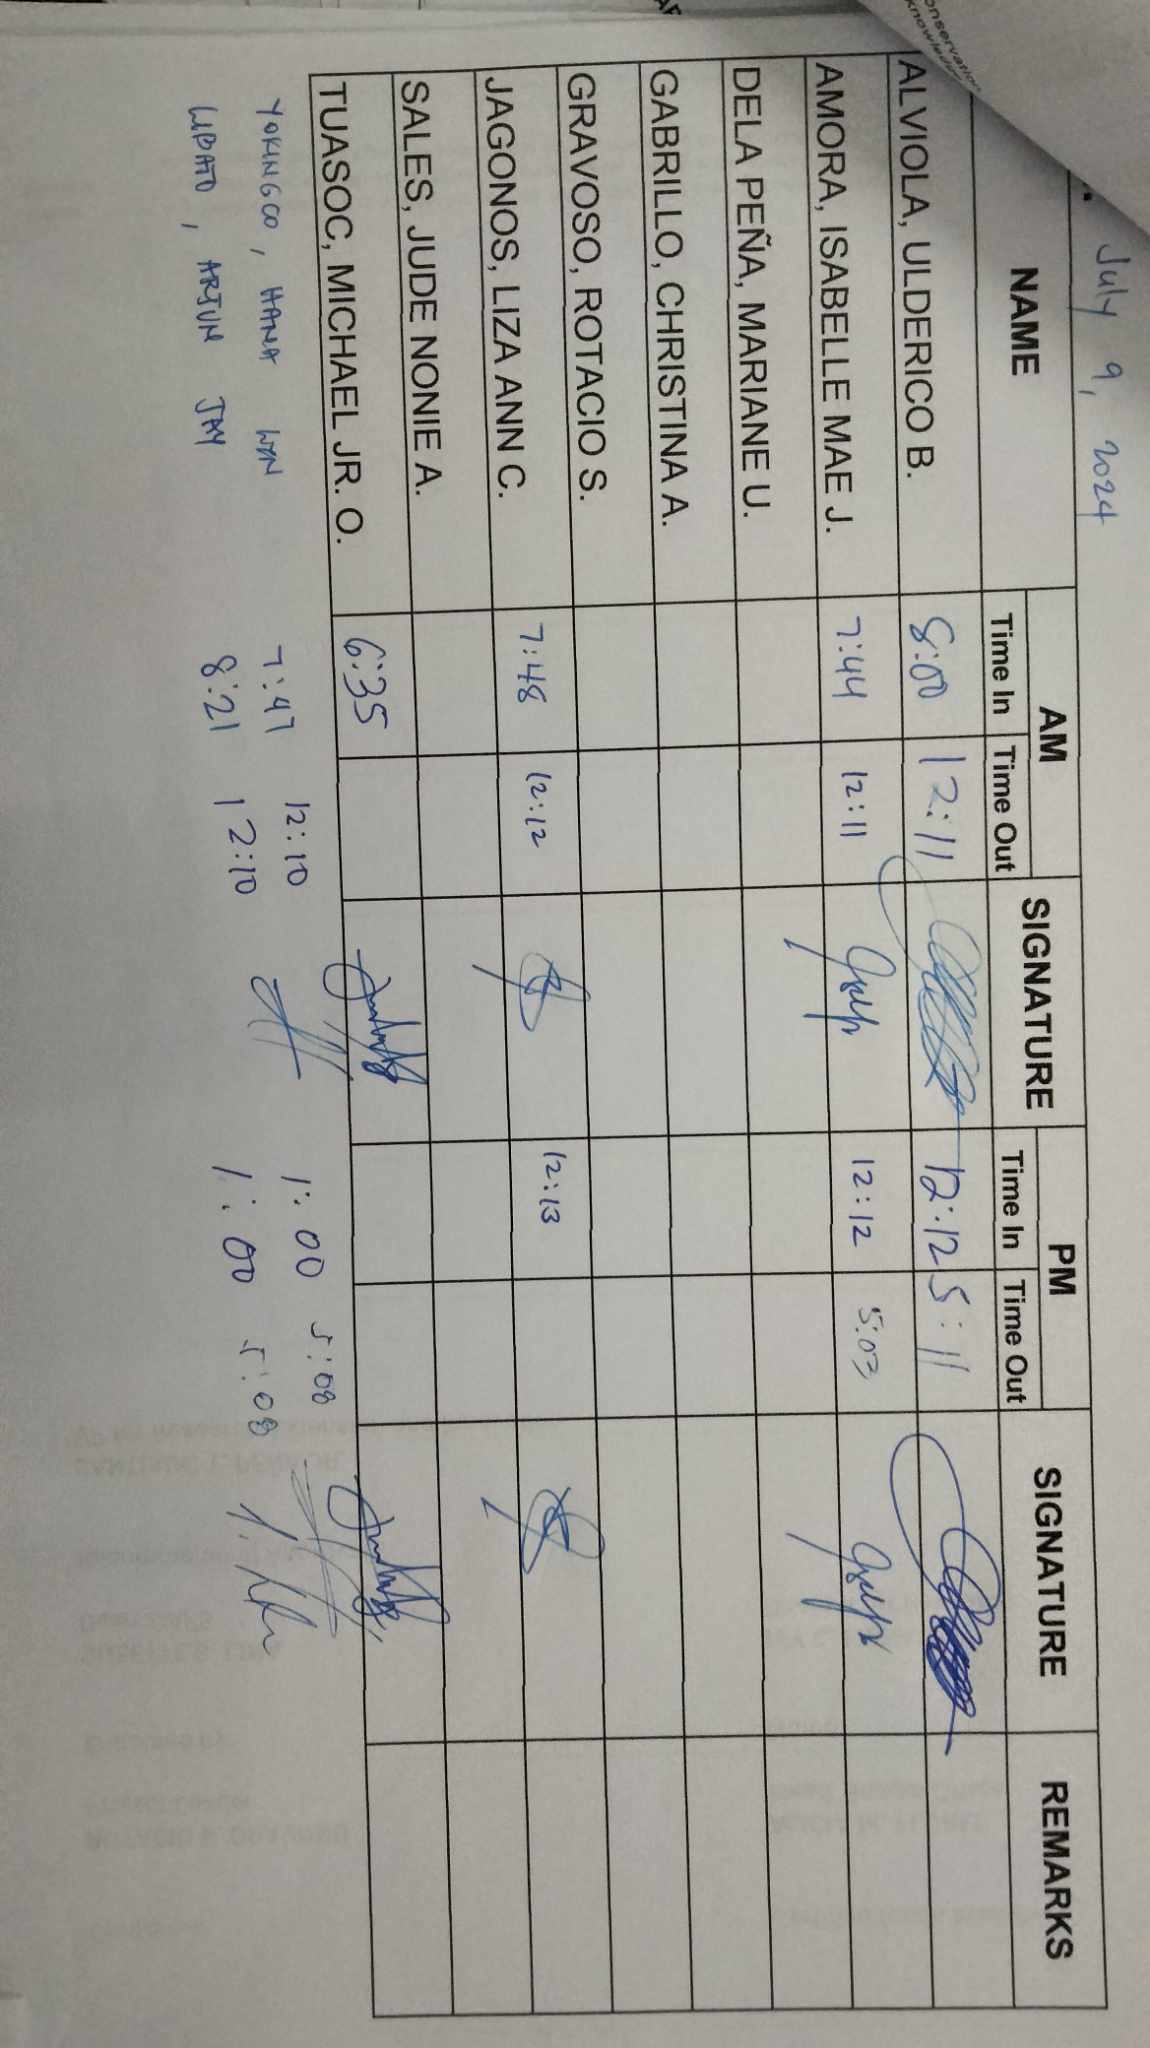 onservation
knowledge
July 9, 2024
NAME AM SIGNATURE PM SIGNATURE REMARKS
Time In Time Out Time In Time Out
ALVIOLA, ULDERICO B. 8:00 12:11 12:12 5:11
AMORA, ISABELLE MAE J. 7:44 12:11 12:12 5:03
DELA PEÑA, MARIANE U.
GABRILLO, CHRISTINA A.
GRAVOSO, ROTACIO S.
JAGONOS, LIZA ANN C. 7:48 12:12 12:13
SALES, JUDE NONIE A.
TUASOC, MICHAEL JR. O. 6:35
YOKINGCO, HANA WYN 7:47 12:10 1:00 5:08
LIBATO, ARJUN JAY 8:21 12:10 1:00 5:08